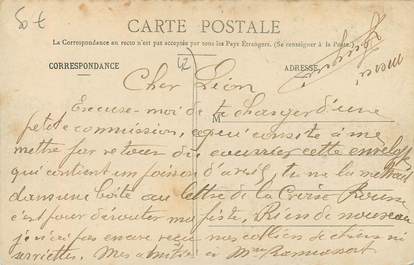 CARTE POSTALE
La Correspondance au recto n'est pas acceptée par tous les Pays Étrangers. (Se renseigner à la Poste.)
CORRESPONDANCE
ADRESSE
Cher Léon
M
Excuse-moi de te charger d'une
petite commission, ce qui consiste à me
mettre par retour du courrier cette enveloppe
qui contient un poisson d'avril, tu me la mettras
dans une boîte au lettre de la Croix Rousse
c'est pour dérouter ma piste, Rien de nouveau
je n'ai pas encore reçu mes colliers de chiens ni
serviettes. Mes amitiés à Mme